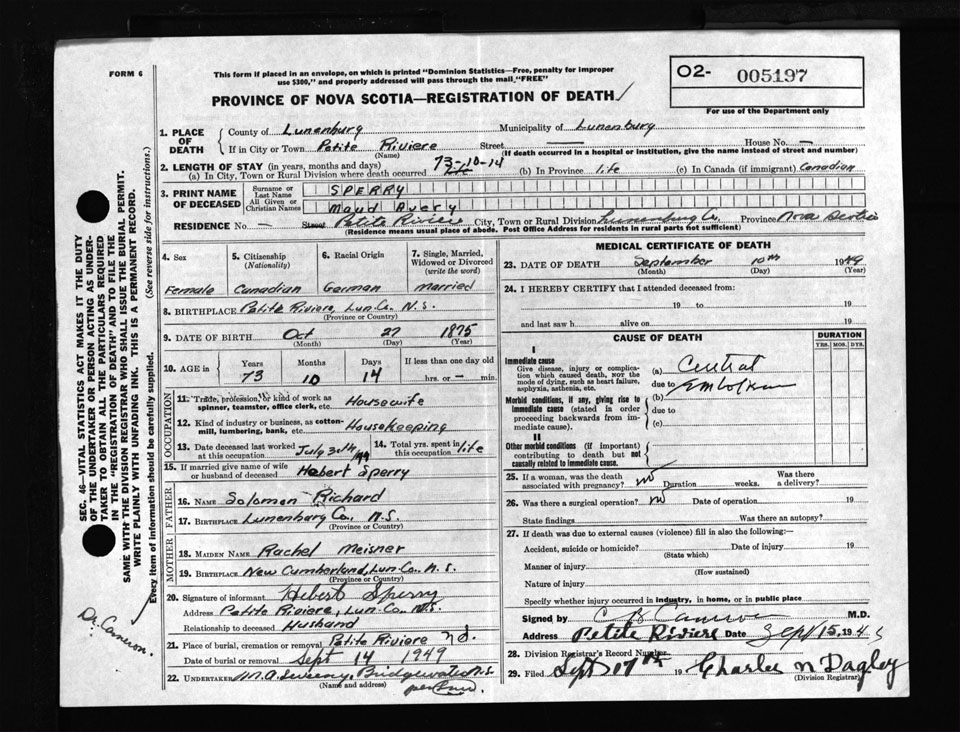 FORM 6
This form if placed in an envelope, on which is printed "Dominion Statistics—Free, penalty for improper
use $300," and properly addressed will pass through the mail "FREE"
O2- 005197
For use of the Department only
PROVINCE OF NOVA SCOTIA—REGISTRATION OF DEATH
1. PLACE OF DEATH
County of Lunenburg Municipality of Lunenburg
If in City or Town Petite Riviere Street — House No. —
(Name) (If death occurred in a hospital or institution, give the name instead of street and number)
2. LENGTH OF STAY (in years, months and days)
(a) In City, Town or Rural Division where death occurred 73-10-14 life (b) In Province life (c) In Canada (if immigrant) Canadian
3. PRINT NAME OF DECEASED
Surname or Last Name SPERRY
All Given or Christian Names Maud Avery
RESIDENCE No. — Street Petite Riviere City, Town or Rural Division Lunenburg Co. Province Nova Scotia
(Residence means usual place of abode. Post Office Address for residents in rural parts not sufficient)
4. Sex Female
5. Citizenship (Nationality) Canadian
6. Racial Origin German
7. Single, Married, Widowed or Divorced (write the word) married
8. BIRTHPLACE Petite Riviere, Lun. Co. N.S.
(Province or Country)
9. DATE OF BIRTH Oct 27 1875
(Month) (Day) (Year)
10. AGE in Years 73 Months 10 Days 14 If less than one day old hrs. or — min.
OCCUPATION
11. Trade, profession, or kind of work as spinner, teamster, office clerk, etc. Housewife
12. Kind of industry or business, as cotton-mill, lumbering, bank, etc. Housekeeping
13. Date deceased last worked at this occupation July 30th/49
14. Total yrs. spent in this occupation life
15. If married give name of wife or husband of deceased Hebert Sperry
FATHER
16. NAME Solomon Richard
17. BIRTHPLACE Lunenburg Co. N.S.
(Province or Country)
MOTHER
18. MAIDEN NAME Rachel Meisner
19. BIRTHPLACE New Cumberland, Lun. Co. N.S.
(Province or Country)
20. Signature of informant Hebert Sperry
Address Petite Riviere, Lun. Co. N.S.
Relationship to deceased Husband
21. Place of burial, cremation or removal Petite Riviere N.S.
Date of burial or removal Sept 14 1949
22. UNDERTAKER M.A. Sweeny, Bridgewater N.S.
(Name and address) per
MEDICAL CERTIFICATE OF DEATH
23. DATE OF DEATH September 10th 1949
(Month) (Day) (Year)
24. I HEREBY CERTIFY that I attended deceased from:
19 to 19
and last saw h alive on 19
CAUSE OF DEATH
DURATION
YRS. MOS. DYS.
I
Immediate cause
Give disease, injury or complication which caused death, NOT the mode of dying, such as heart failure, asphyxia, asthenia, etc.
(a) Cerebral
due to Embolism
Morbid conditions, if any, giving rise to immediate cause (stated in order proceeding backwards from immediate cause).
(b)
due to
(c)
II
Other morbid conditions (if important) contributing to death but not causally related to immediate cause.
25. If a woman, was the death associated with pregnancy? no Duration weeks. Was there a delivery?
26. Was there a surgical operation? no Date of operation 19
State findings Was there an autopsy?
27. If death was due to external causes (violence) fill in also the following:—
Accident, suicide or homicide? Date of injury 19
(State which)
Manner of injury
(How sustained)
Nature of injury
Specify whether injury occurred in industry, in home, or in public place
Signed by C B Cameron M.D.
Address Petite Riviere Date Sept 15, 194
28. Division Registrar's Record Number
29. Filed Sept 17th 19 Charles N Dagley
(Division Registrar)
SEC. 46—VITAL STATISTICS ACT MAKES IT THE DUTY
OF THE UNDERTAKER OR PERSON ACTING AS UNDER-
TAKER TO OBTAIN ALL THE PARTICULARS REQUIRED
IN THE "REGISTRATION OF DEATH" AND TO FILE THE
SAME WITH THE DIVISION REGISTRAR WHO SHALL ISSUE THE BURIAL PERMIT.
WRITE PLAINLY WITH UNFADING INK. THIS IS A PERMANENT RECORD.
Every item of information should be carefully supplied. (See reverse side for instructions.)
Dr. Cameron.